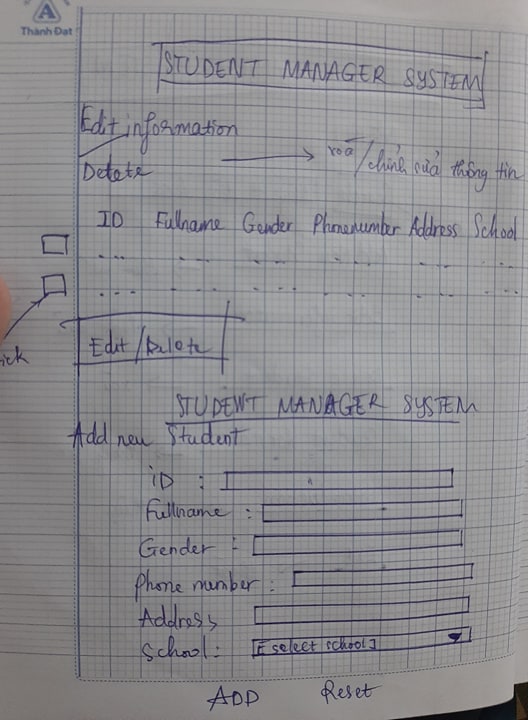 A
Thành Đạt
STUDENT MANAGER SYSTEM
Edit information
Detete
xoá/chỉnh sửa thông tin
ID Fullname Gender Phonenumber Address School
... ... ... ... ...
.... ... ... ... ...
ick
Edit/Delete
STUDENT MANAGER SYSTEM
Add new Student
iD :
Fullname :
Gender :
Phone number :
Address
School : [select school]
ADD Reset